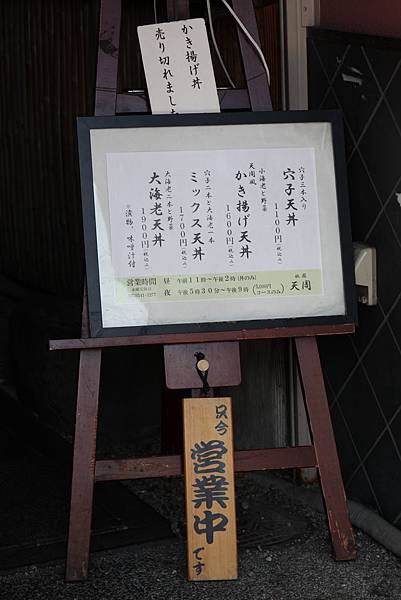 かき揚げ丼
売り切れました
穴子三本入り
穴子天丼
1100円(税込み)
小海老と野菜
天周風
かき揚げ天丼
1600円(税込み)
穴子二本と大海老一本
ミックス天丼
1700円(税込み)
大海老二本と野菜
大海老天丼
1900円(税込み)
※漬物、味噌汁付
営業時間 昼 午前11時〜午後2時(丼のみ)
夜 午後5時30分〜午後9時(5,000円コースのみ)
天周
只今
営業中
です